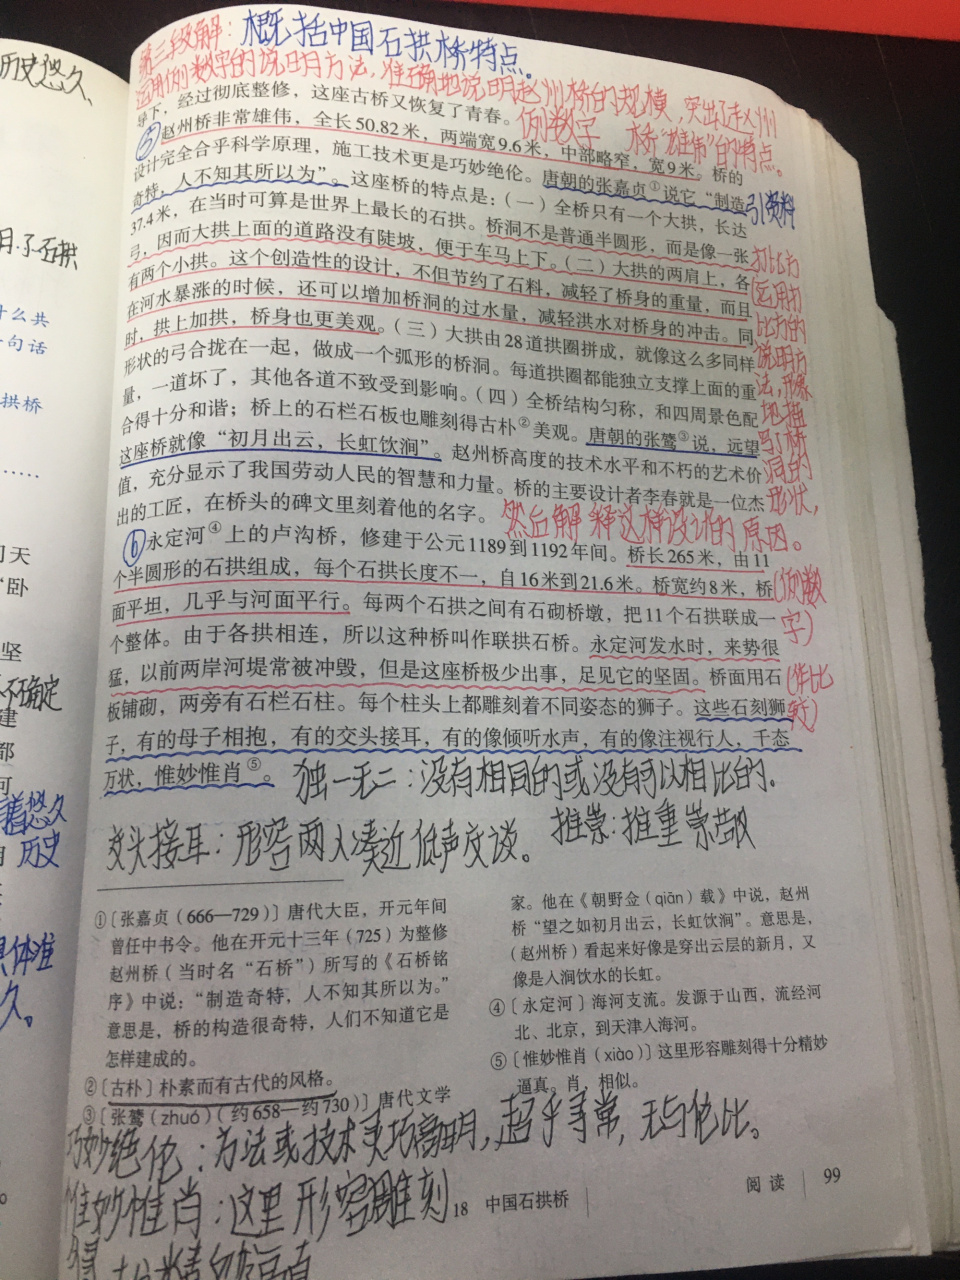 历史悠久、
第三段解：概括中国石拱桥特点。
运用列数字的说明方法，准确地说明赵州桥的规模，突出赵州
桥“雄伟”的特点。
列数字
导下，经过彻底整修，这座古桥又恢复了青春。
⑤赵州桥非常雄伟，全长50.82米，两端宽9.6米，中部略窄，宽9米。桥的
设计完全合乎科学原理，施工技术更是巧妙绝伦。唐朝的张嘉贞①说它“制造
奇特，人不知其所以为”。这座桥的特点是：（一）全桥只有一个大拱，长达
37.4米，在当时可算是世界上最长的石拱。桥洞不是普通半圆形，而是像一张
弓，因而大拱上面的道路没有陡坡，便于车马上下。（二）大拱的两肩上，各
有两个小拱。这个创造性的设计，不但节约了石料，减轻了桥身的重量，而且
在河水暴涨的时候，还可以增加桥洞的过水量，减轻洪水对桥身的冲击。同
时，拱上加拱，桥身也更美观。（三）大拱由28道拱圈拼成，就像这么多同样
形状的弓合拢在一起，做成一个弧形的桥洞。每道拱圈都能独立支撑上面的重
量，一道坏了，其他各道不致受到影响。（四）全桥结构匀称，和四周景色配
合得十分和谐；桥上的石栏石板也雕刻得古朴②美观。唐朝的张鷟③说，远望
这座桥就像“初月出云，长虹饮涧”。赵州桥高度的技术水平和不朽的艺术价
值，充分显示了我国劳动人民的智慧和力量。桥的主要设计者李春就是一位杰
出的工匠，在桥头的碑文里刻着他的名字。
引资料
打比方
（运用打
比方的
说明方
法，形象
地描
写了桥
洞的
形状，
然后解释这样设计的原因。
⑥永定河④上的卢沟桥，修建于公元1189到1192年间。桥长265米，由11
个半圆形的石拱组成，每个石拱长度不一，自16米到21.6米。桥宽约8米，桥
面平坦，几乎与河面平行。每两个石拱之间有石砌桥墩，把11个石拱联成一
个整体。由于各拱相连，所以这种桥叫作联拱石桥。永定河发水时，来势很
猛，以前两岸河堤常被冲毁，但是这座桥极少出事，足见它的坚固。桥面用石
板铺砌，两旁有石栏石柱。每个柱头上都雕刻着不同姿态的狮子。这些石刻狮
子，有的母子相抱，有的交头接耳，有的像倾听水声，有的像注视行人，千态
万状，惟妙惟肖⑤。
（列数
字）
（作比
较）
独一无二：没有相同的或没有可以相比的。
交头接耳：形容两人凑近低声交谈。
推崇：推重崇敬
①〔张嘉贞（666—729）〕唐代大臣，开元年间
曾任中书令。他在开元十三年（725）为整修
赵州桥（当时名“石桥”）所写的《石桥铭
序》中说：“制造奇特，人不知其所以为。”
意思是，桥的构造很奇特，人们不知道它是
怎样建成的。
②〔古朴〕朴素而有古代的风格。
③〔张鷟（zhuó）（约658—约730）〕唐代文学
家。他在《朝野佥（qiān）载》中说，赵州
桥“望之如初月出云，长虹饮涧”。意思是，
（赵州桥）看起来好像是穿出云层的新月，又
像是入涧饮水的长虹。
④〔永定河〕海河支流。发源于山西，流经河
北、北京，到天津入海河。
⑤〔惟妙惟肖（xiào）〕这里形容雕刻得十分精妙
逼真。肖，相似。
巧妙绝伦：方法或技术灵巧高明，超乎寻常，无与伦比。
惟妙惟肖：这里形容雕刻
得十分精妙逼真
18 中国石拱桥
阅读 99
什么共
一句话
拱桥
……
天
“卧
坚
不确定
建
都
河
着悠久
历史
具体准
久。